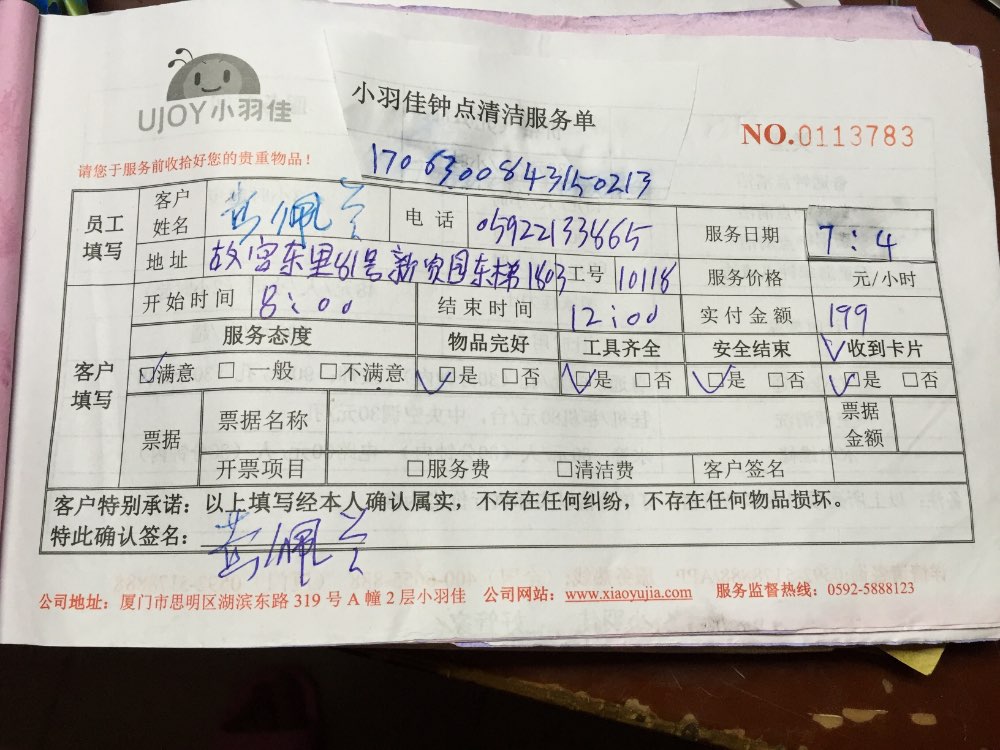 UJOY小羽佳
小羽佳钟点清洁服务单
NO.0113783
请您于服务前收拾好您的贵重物品！
1706300843150213
员工填写 客户姓名 黄佩兰 电话 05922133665 服务日期 7:4
地址 故宫东里61号新资园东梯1803 工号 10118 服务价格 元/小时
开始时间 8:00 结束时间 12:00 实付金额 199
客户填写 服务态度 物品完好 工具齐全 安全结束 √收到卡片
☑满意 □一般 □不满意 ☑是 □否 ☑是 □否 ☑是 □否 ☑是 □否
票据 票据名称 票据金额
开票项目 □服务费 □清洁费 客户签名
客户特别承诺：以上填写经本人确认属实，不存在任何纠纷，不存在任何物品损坏。
特此确认签名：黄佩兰
公司地址：厦门市思明区湖滨东路 319 号 A 幢 2 层小羽佳 公司网站：www.xiaoyujia.com 服务监督热线：0592-5888123